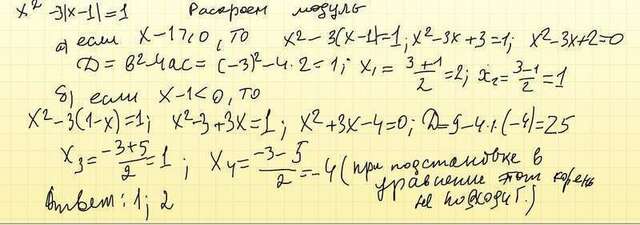 x² -3|x-1|=1 Раскроем модуль
а) если x-1⩾0, то x²-3(x-1)=1; x²-3x+3=1; x²-3x+2=0
D=в²-4ас=(-3)²-4·2=1; x₁=(3+1)/2=2; x₂=(3-1)/2=1
б) если x-1<0, то
x²-3(1-x)=1; x²-3+3x=1; x²+3x-4=0; D=9-4·1·(-4)=25
x₃=(-3+5)/2=1; x₄=(-3-5)/2=-4 (при подстановке в
уравнение этот корень
не подходит.)
Ответ: 1; 2